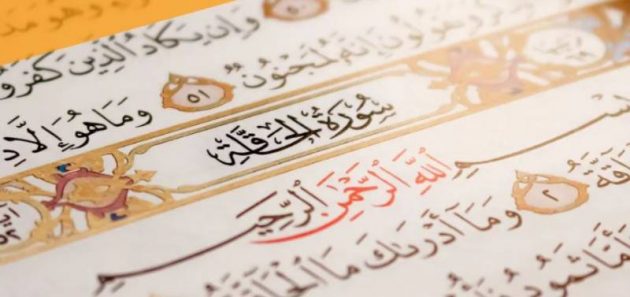 وَهُوَ
وَإِن يَكَادُ ٱلَّذِينَ كَفَرُو
وَيَقُولُونَ إِنَّهُۥ لَمَجْنُونٌ ٥١ وَمَا هُوَ إِلَّا
سُورَةُ الْحَاقَّةِ
بِسْمِ ٱللَّهِ ٱلرَّحْمَٰنِ ٱلرَّحِيمِ
اقَّةُ ٢ وَمَآ أَدْرَىٰكَ مَا ٱلْحَاقَّةُ
فَأَمَّا ثَمُودُ